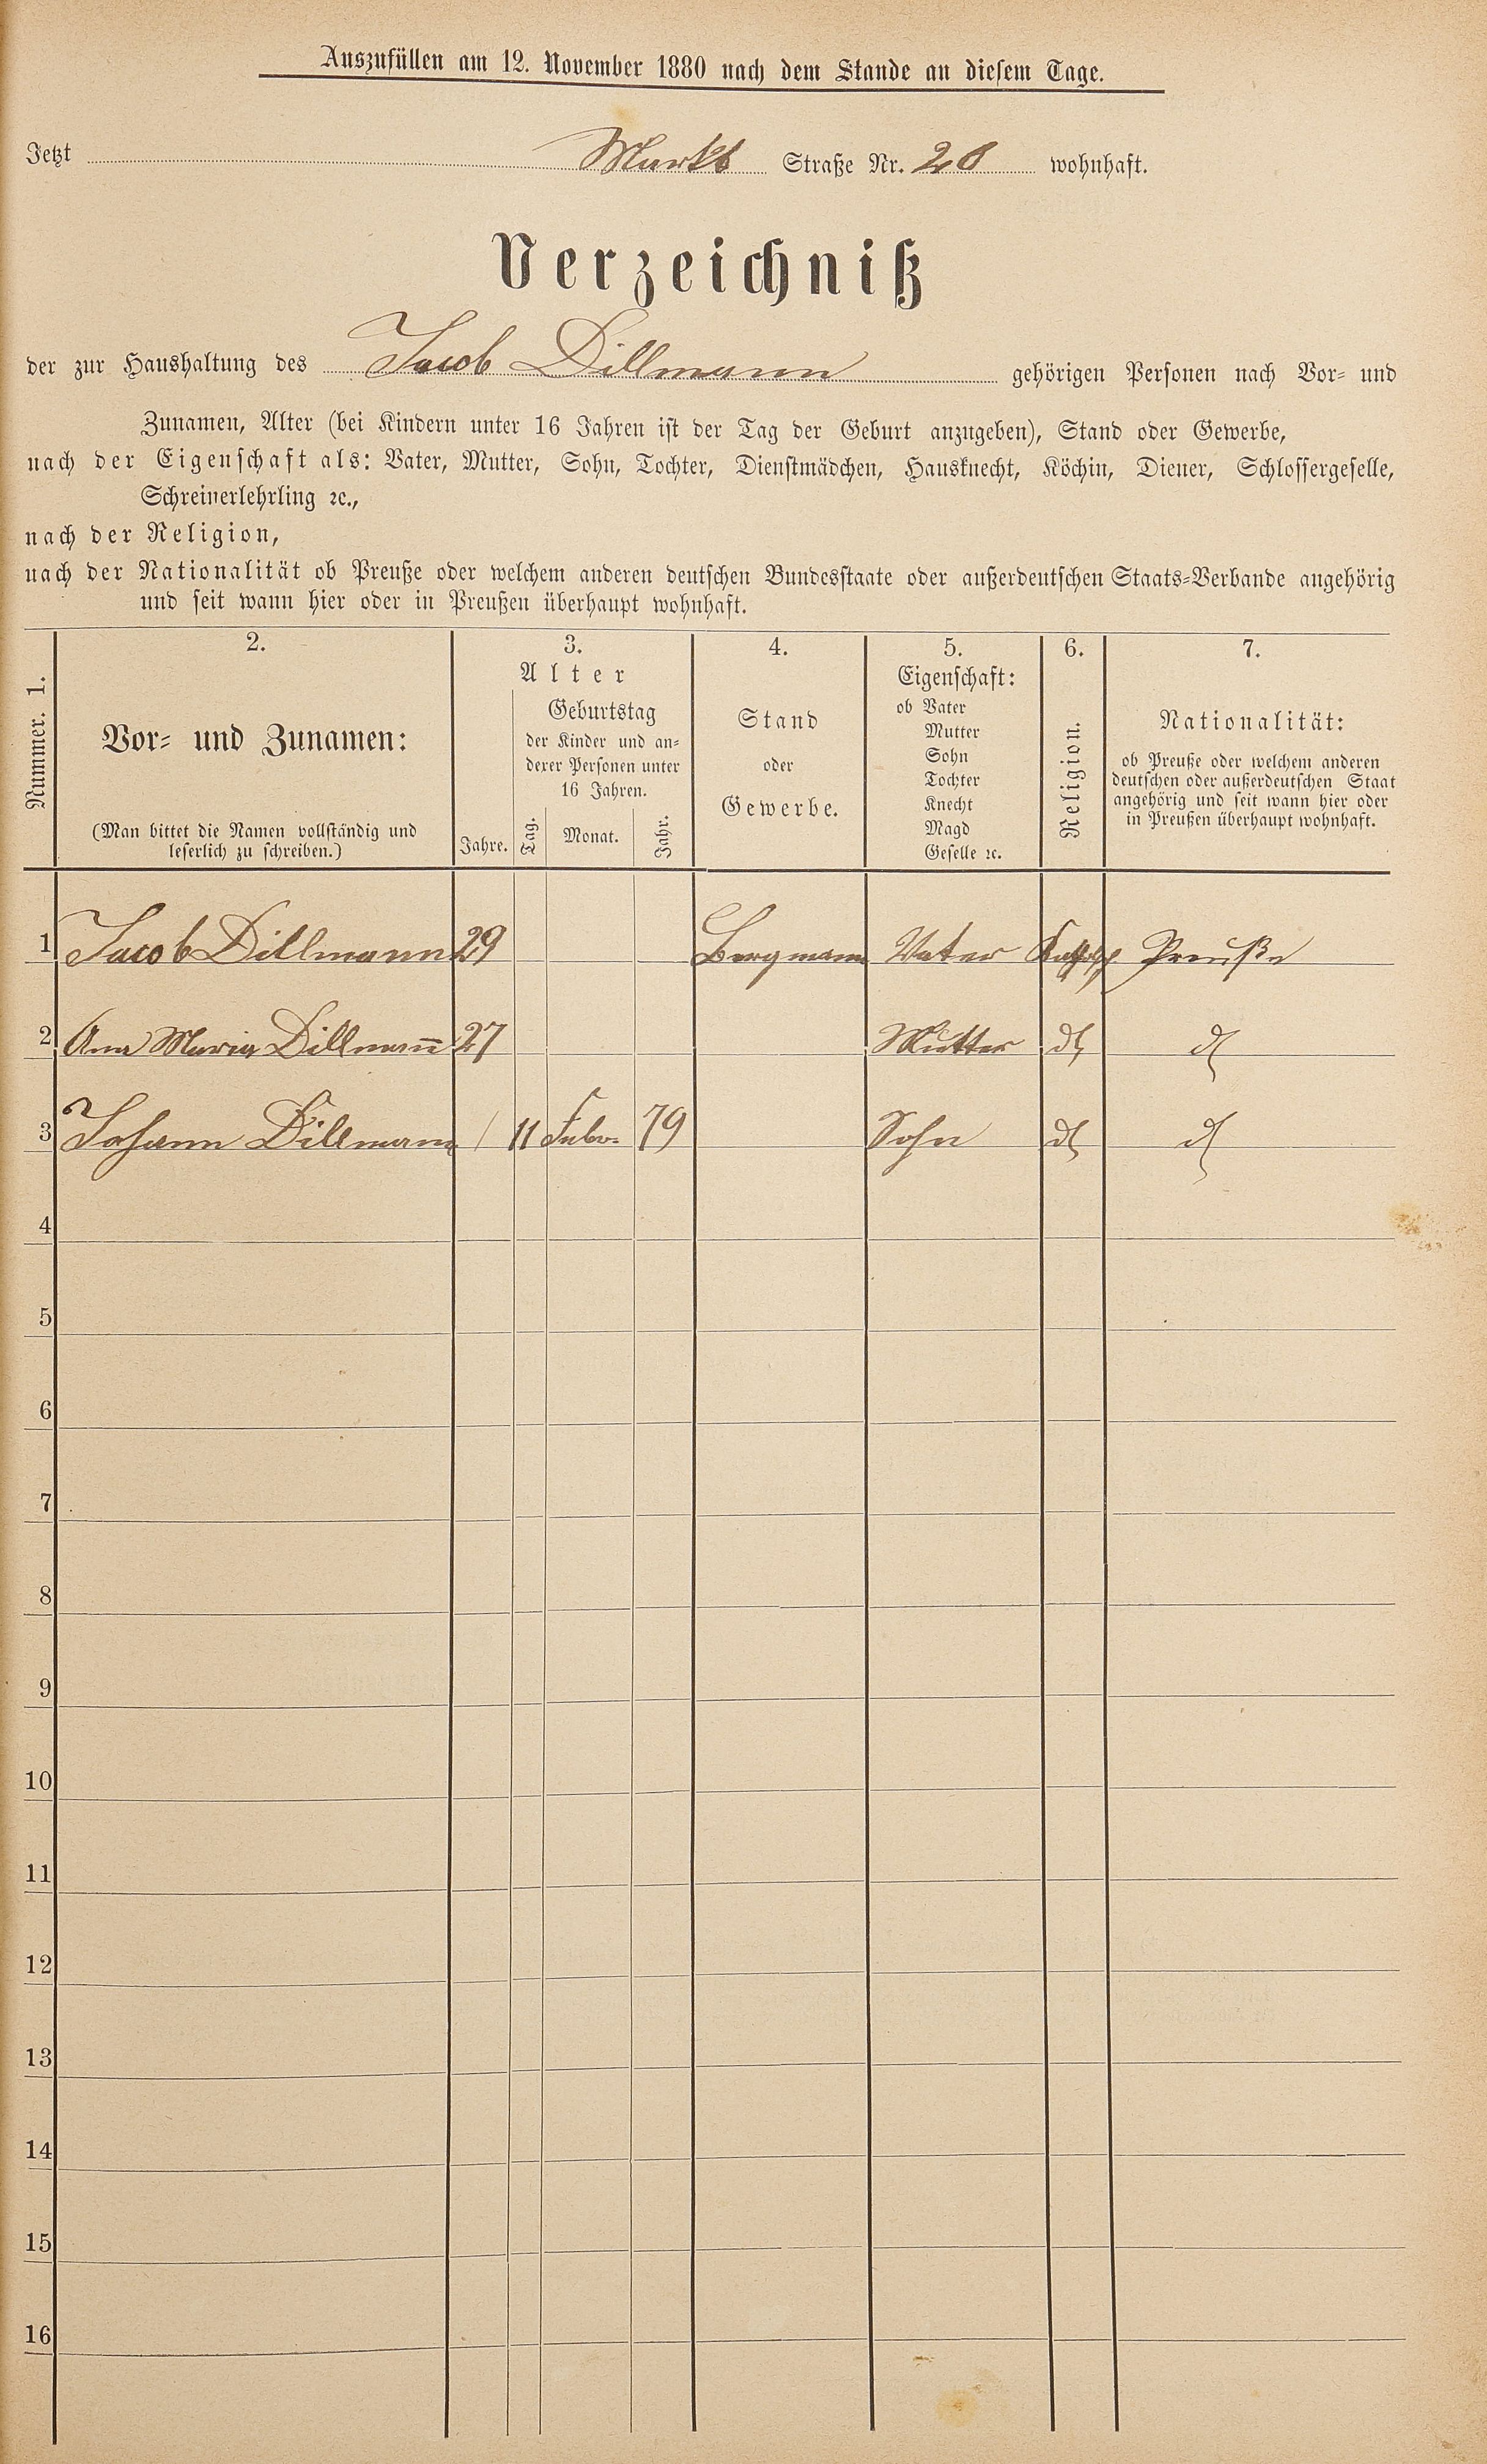 Auszufüllen am 12. November 1880 nach dem Stande an diesem Tage.
Jetzt Markt Straße Nr. 20 wohnhaft.
Verzeichniß
der zur Haushaltung des Jacob Dillmann gehörigen Personen nach Vor- und
Zunamen, Alter (bei Kindern unter 16 Jahren ist der Tag der Geburt anzugeben), Stand oder Gewerbe,
nach der Eigenschaft als: Vater, Mutter, Sohn, Tochter, Dienstmädchen, Hausknecht, Köchin, Diener, Schlossergeselle,
Schreinerlehrling ꝛc.,
nach der Religion,
nach der Nationalität ob Preuße oder welchem anderen deutschen Bundesstaate oder außerdeutschen Staats-Verbande angehörig
und seit wann hier oder in Preußen überhaupt wohnhaft.
Nummer. 1.
2.
Vor- und Zunamen:
(Man bittet die Namen vollständig und
leserlich zu schreiben.)
3.
Alter
Jahre.
Geburtstag
der Kinder und an-
derer Personen unter
16 Jahren.
Tag. Monat. Jahr.
4.
Stand
oder
Gewerbe.
5.
Eigenschaft:
ob Vater
Mutter
Sohn
Tochter
Knecht
Magd
Geselle ꝛc.
6.
Religion.
7.
Nationalität:
ob Preuße oder welchem anderen
deutschen oder außerdeutschen Staat
angehörig und seit wann hier oder
in Preußen überhaupt wohnhaft.
1 Jacob Dillmann 29 Bergmann Vater Kathol Preuße
2 Ana Maria Dillmañ 27 Mutter d d
3 Johann Dillmann / 11 Febr. 79 Sohn d d
4
5
6
7
8
9
10
11
12
13
14
15
16